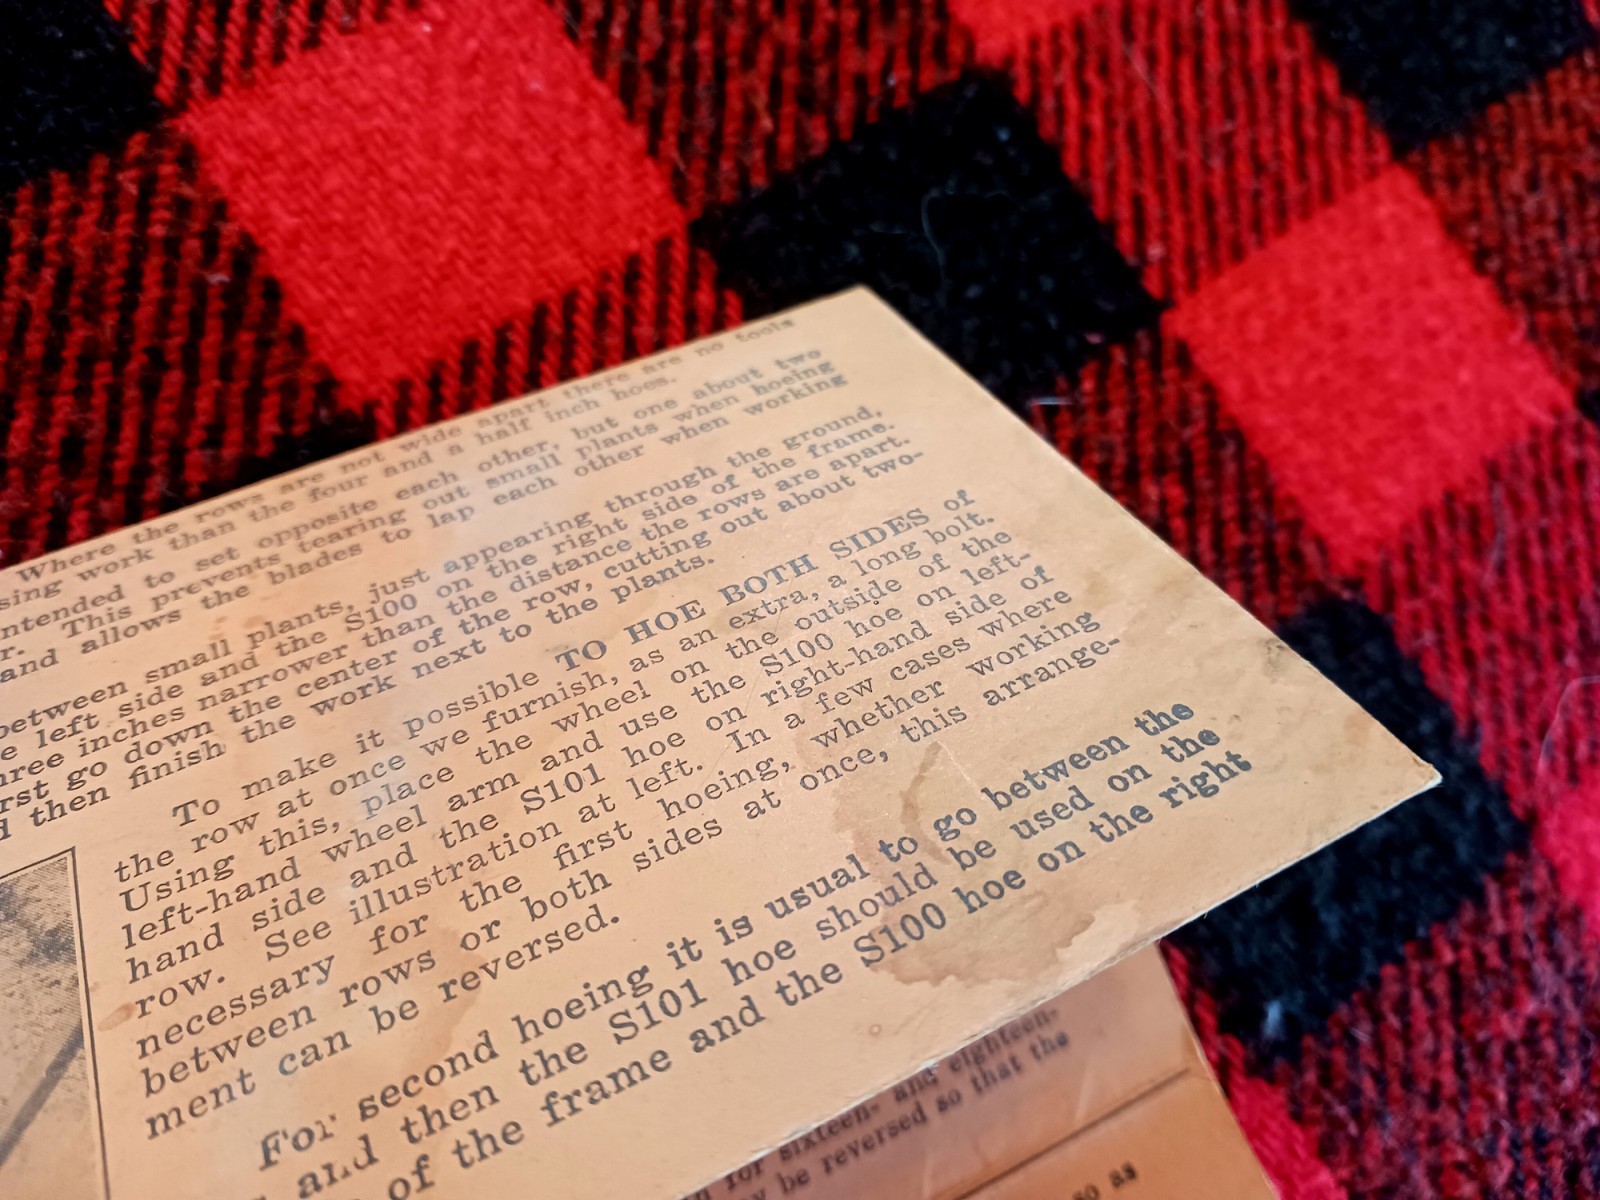 Where the rows are not wide apart there are no tools
sing work than the four and a half inch hoes.
ntended to set opposite each other, but one about two
r. This prevents tearing out small plants when hoeing
and allows the blades to lap each other when working
between small plants, just appearing through the ground,
e left side and the S100 on the right side of the frame.
hree inches narrower than the distance the rows are apart.
rst go down the center of the row, cutting out about two-
d then finish the work next to the plants.
To make it possible TO HOE BOTH SIDES of
the row at once we furnish, as an extra, a long bolt.
Using this, place the wheel on the outside of the
left-hand wheel arm and use the S100 hoe on left-
hand side and the S101 hoe on right-hand side of
row. See illustration at left. In a few cases where
necessary for the first hoeing, whether working
between rows or both sides at once, this arrange-
ment can be reversed.
For second hoeing it is usual to go between the
and then the S101 hoe should be used on the
of the frame and the S100 hoe on the right
for sixteen- and eighteen-
y be reversed so that the
so as